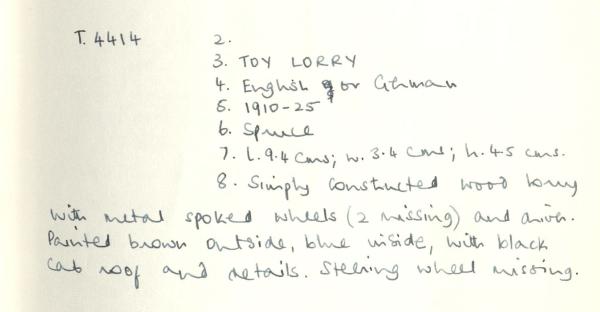 T.4414 2.
3. TOY LORRY
4. English or German
5. 1910-25
6. Spruce
7. L. 9.4 cms; w. 3.4 cms; h. 4.5 cms.
8. Simply constructed wood lorry
with metal spoked wheels (2 missing) and driver.
Painted brown outside, blue inside, with black
cab roof and details. Steering wheel missing.